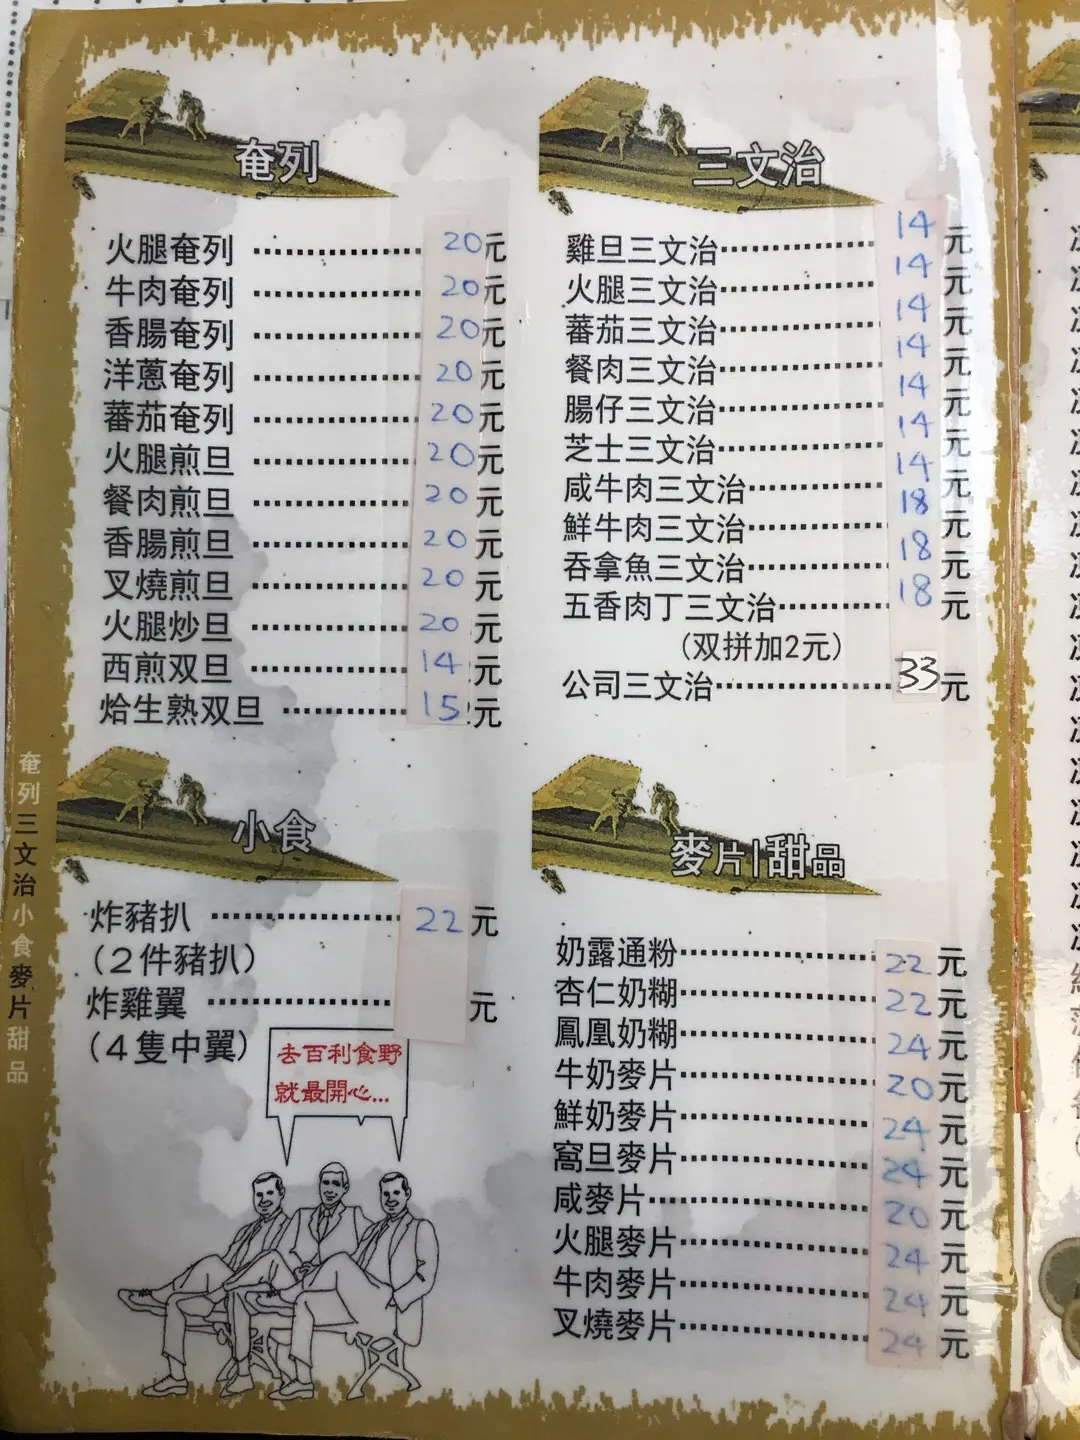 奄列
火腿奄列 20元
牛肉奄列 20元
香腸奄列 20元
洋蔥奄列 20元
蕃茄奄列 20元
火腿煎旦 20元
餐肉煎旦 20元
香腸煎旦 20元
叉燒煎旦 20元
火腿炒旦 20元
西煎双旦 14元
烚生熟双旦 15元
三文治
雞旦三文治 14元
火腿三文治 14元
蕃茄三文治 14元
餐肉三文治 14元
腸仔三文治 14元
芝士三文治 14元
咸牛肉三文治 14元
鮮牛肉三文治 18元
吞拿魚三文治 18元
五香肉丁三文治 18元
(双拼加2元)
公司三文治 33元
小食
炸豬扒 22元
(2件豬扒)
炸雞翼 元
(4隻中翼)
去百利食野
就最開心...
麥片|甜品
奶露通粉 22元
杏仁奶糊 22元
鳳凰奶糊 24元
牛奶麥片 20元
鮮奶麥片 24元
窩旦麥片 24元
咸麥片 20元
火腿麥片 24元
牛肉麥片 24元
叉燒麥片 24元
奄列三文治小食麥片甜品